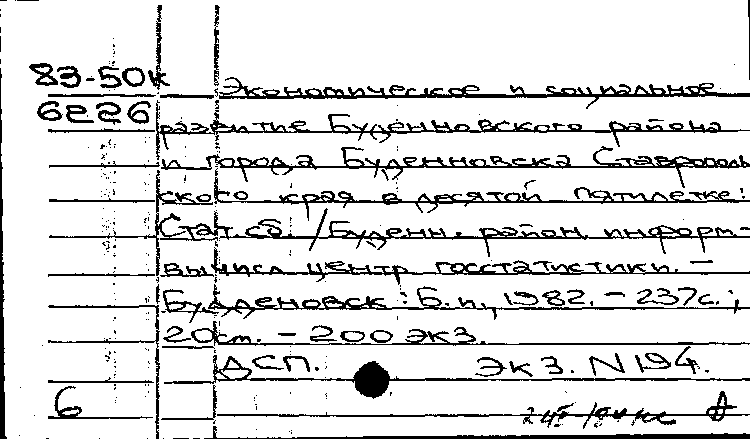 83-50к
6226
Экономическое и социальное
развитие Буденновского района
и города Буденновска Ставрополь
ского края в десятой пятилетке:
Стат. сб. / Буденн. район. информ-
вычисл центр госстатистики. –
Буденовск : Б.и., 1982. – 237с. ;
20см. – 200 экз.
ДСП. Экз. N 194.
6